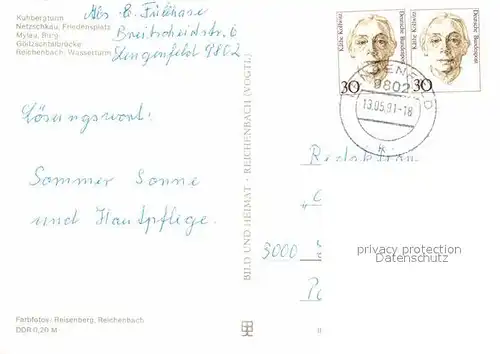 Kuhbergturm
Netzschkau, Friedensplatz
Mylau, Burg
Göltzschtalbrücke
Reichenbach, Wasserturm
Abs
Breitscheidstr. 6
Lengenfeld 9802
Lösungswort:
Sommer Sonne
und Hautpflege.
Farbfotos: Reisenberg, Reichenbach
DDR 0,20 M
BILD UND HEIMAT · REICHENBACH (VOGTL)
Käthe Kollwitz
Deutsche Bundespost
30
Käthe Kollwitz
Deutsche Bundespost
30
LENGENFELD
9802
13.05.91-18
Redaktion
3000
privacy protection
Datenschutz